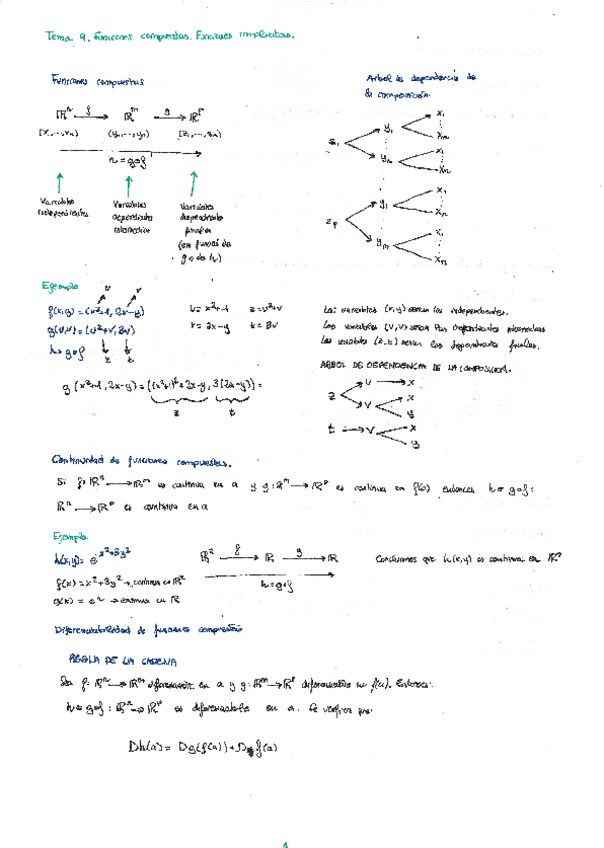 Tema 9. Funciones compuestas. Funciones implícitas.
Funciones compuestas
Arbol de dependencia de
la composición
ℝⁿ → f ℝᵐ → g ℝᵖ
(x₁,...,xₙ) (y₁,...,yₘ) (z₁,...,zₚ)
h = g∘f
Variables independientes
Variables dependientes intermedias
Variables dependientes finales
(en función de g o de h)
z₁ y₁ x₁ xₙ
yₘ x₁ xₙ
zₚ y₁ x₁ xₙ
yₘ x₁ xₙ
Ejemplo
u v
f(x,y) = (x²+1, 2x-y)
g(u,v) = (u²+v, 3v)
h = g∘f
z t
u = x²+1 z = u²+v
v = 2x-y t = 3v
Las variables (x,y) serían las independientes.
Las variables (u,v) serían las dependientes intermedias
Las variables (z,t) serían las dependientes finales.
g(x²+1, 2x-y) = ((x²+1)²+2x-y, 3(2x-y)) =
z t
ARBOL DE DEPENDENCIA DE LA COMPOSICIÓN.
z u → x
v x
y
t → v x
y
Continuidad de funciones compuestas.
Si f: ℝⁿ → ℝᵐ es continua en a y g: ℝᵐ → ℝᵖ es continua en f(a) entonces h = g∘f:
ℝⁿ → ℝᵖ es continua en a
Ejemplo
h(x,y) = e^(x²+3y²)
ℝ² → f ℝ → g ℝ
h = g∘f
Concluimos que h(x,y) es continua en ℝ²
f(x) = x²+3y² → continua en ℝ²
g(x) = eˣ → continua en ℝ
Diferenciabilidad de funciones compuestas
REGLA DE LA CADENA
Sea f: ℝⁿ → ℝᵐ diferenciable en a y g: ℝᵐ → ℝᵖ diferenciable en f(a). Entonces:
h = g∘f : ℝⁿ → ℝᵖ es diferenciable en a. Se verifica que:
Dh(a) = Dg(f(a)) · Df(a)